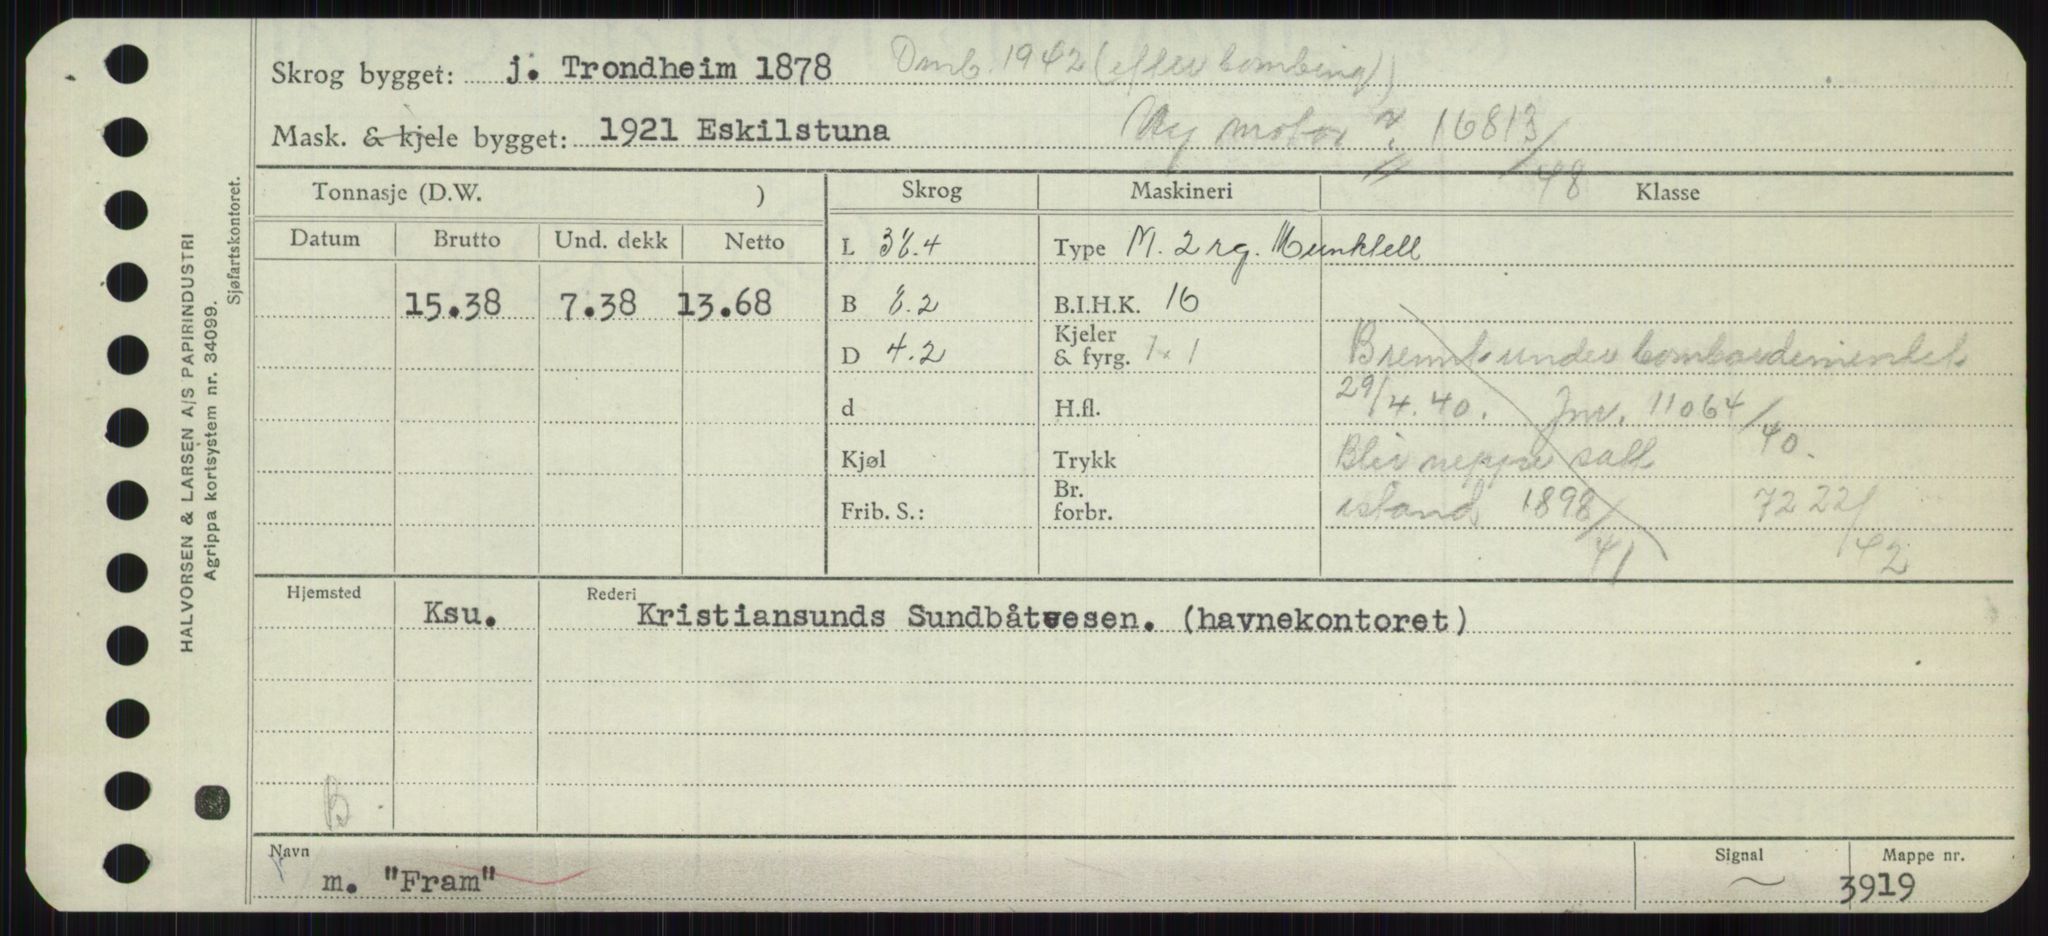 Skrog bygget: j. Trondheim 1878 Omb. 1942 (efter bombing)
Mask. & kjele bygget: 1921 Eskilstuna Ny motor ? 16813/48
Tonnasje (D.W. ) Skrog Maskineri Klasse
Datum Brutto Und. dekk Netto L 38.4 Type M. 2 rg. Munktell
15.38 7.38 13.68 B 8.2 B.I.H.K. 16
D 4.2 Kjeler & fyrg. 1 x 1 Brent under bombardementet
d H.fl. 29/4.40. Jnr. 11064/40.
Kjøl Trykk Blir neppe satt
Frib. S.: Br. forbr. istand 1898/41 7222/42
Hjemsted Ksu. Rederi Kristiansunds Sundbåtvesen. (havnekontoret)
B
Navn m. "Fram" Signal Mappe nr. 3919
HALVORSEN & LARSEN A/S PAPIRINDUSTRI
Agrippa kortsystem nr. 34099.
Sjøfartskontoret.